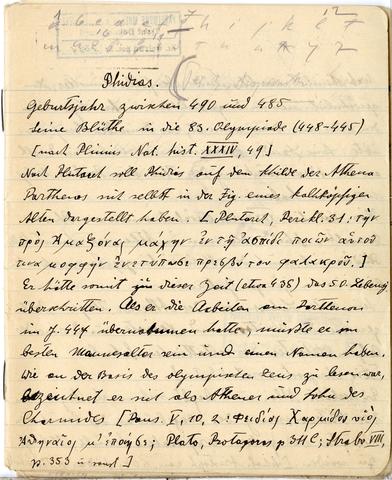 Phidias.
Geburtsjahr zwischen 490 und 485
seine Blüthe in die 83. Olympiade (448-445)
[nach Plinius Nat. hist. XXXIV, 49]
Nach Plutarch soll Phidias auf dem Schilde der Athena
Parthenos sich selbst in der Fig. eines kahlköpfigen
Alten dargestellt haben. [Plutarch, Perikl. 31: τὴν
πρὸς Ἀμαζόνας μάχην ἐν τῇ ἀσπίδι ποιῶν αὑτοῦ
τινα μορφὴν ἐνετύπωσε πρεσβύτου φαλακροῦ.]
Er hätte somit in dieser Zeit (etwa 438) das 50. Lebensj
überschritten. Als er die Arbeiten am Parthenon
im J. 447 übernommen hatte, musste er im
besten Mannesalter sein und einen Namen haben.
Wie an der Basis des olympischen Zeus zu lesen war,
bezeichnet er sich als Athener und Sohn des
Charmides [Paus. V, 10, 2: Φειδίας Χαρμίδου υἱὸς
Ἀθηναῖός μ' ἐποίησε; Plato, Protagoras p 311 C; Strabo VIII,
p. 353 u sonst.]